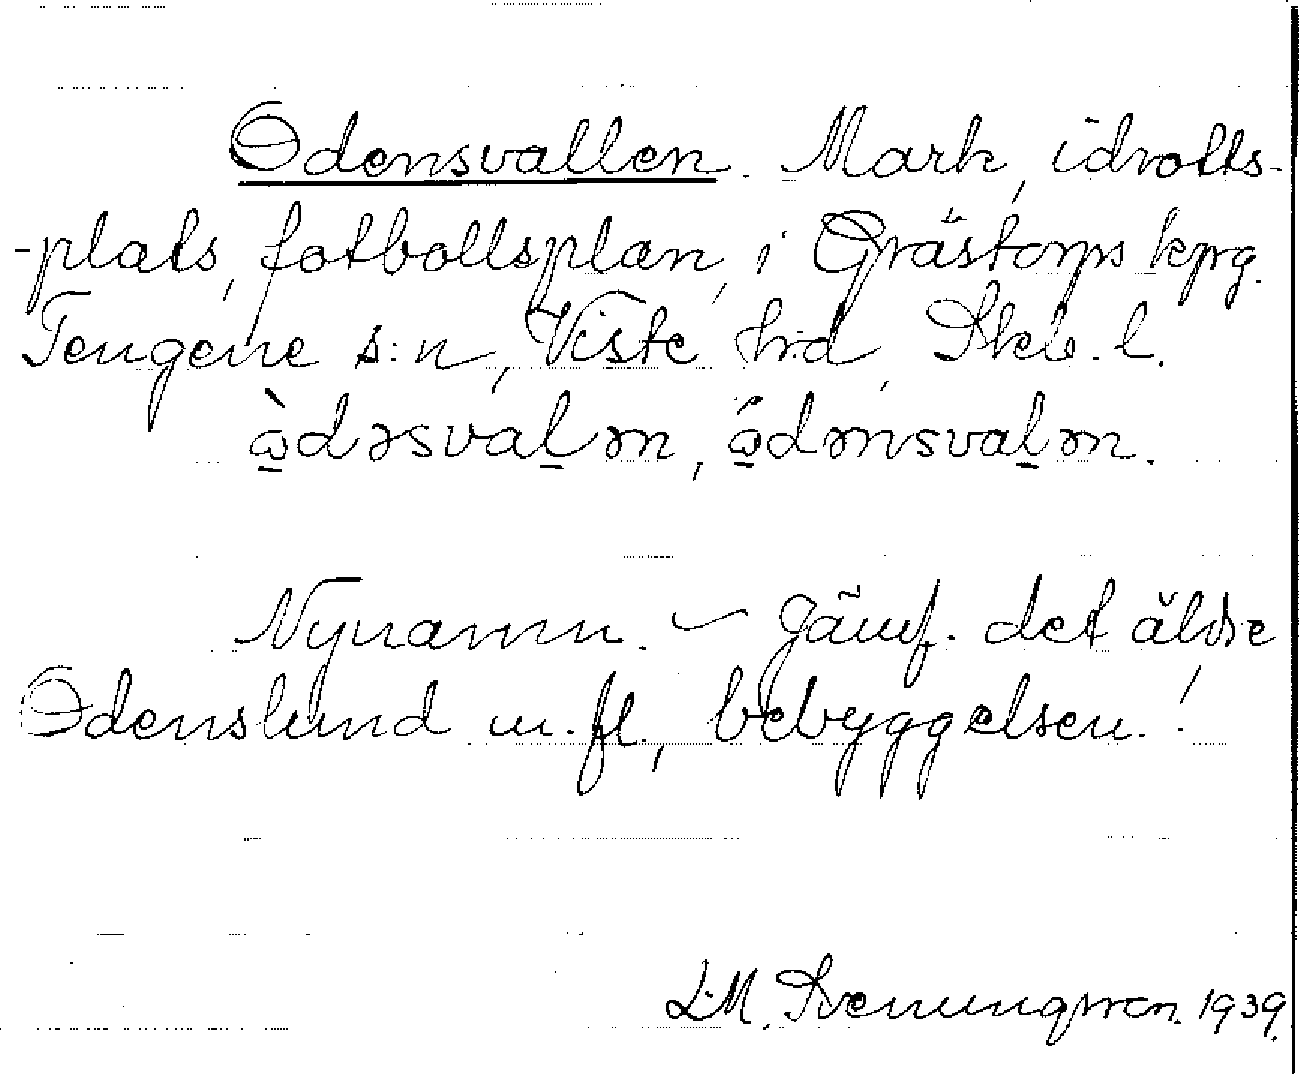 Odensvallen. Mark, idrotts-
-plats, fotbollsplan, i Grästorps kpg.
Tengene s:n, Viste h:d, Skab. l.
ɷ̀dəsvaḻən, ɷ̋dənsvaḻən.
Nynamn. – Jämf. det äldre
Odenslund m.fl., bebyggelsen.!
L.M. Svenungsson. 1939.